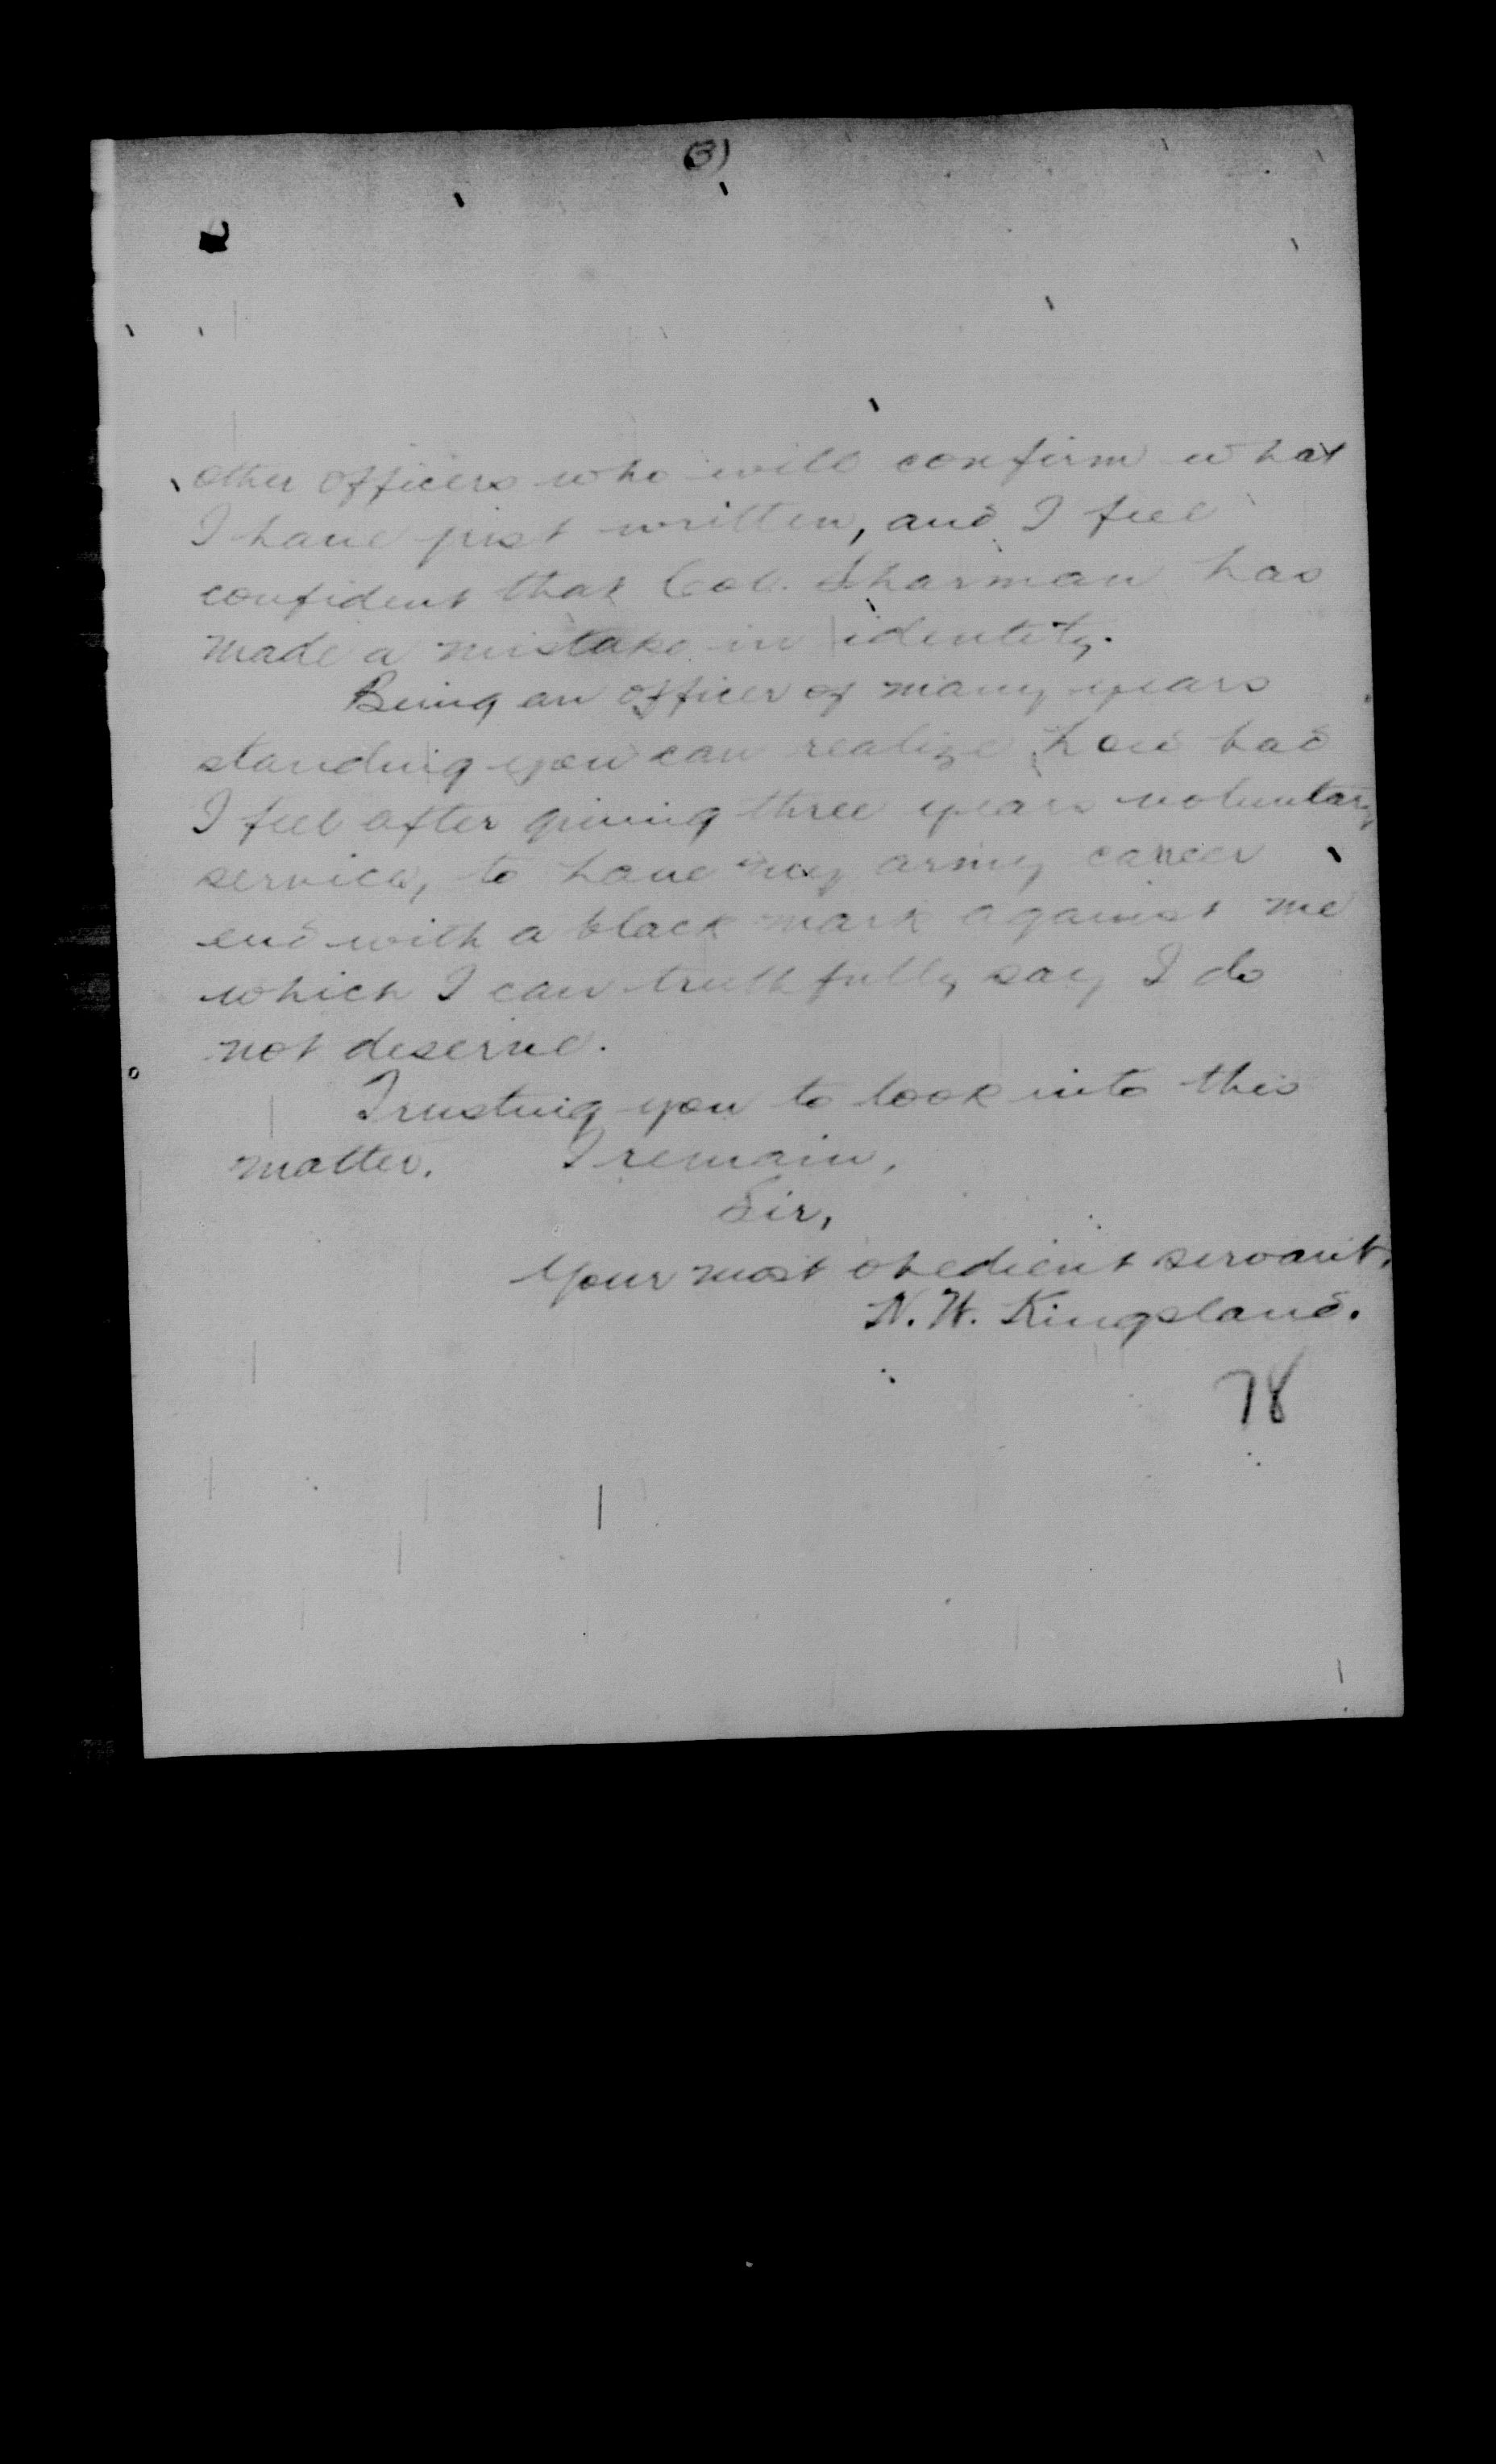 (3)
other officers who will confirm what
I have just written, and I feel
confident that Col. Sharman has
made a mistake in identity.
Being an officer of many years
standing you can realize how bad
I feel after giving three years voluntary
service, to have my army career
end with a black mark against me
which I can truthfully say I do
not deserve.
Trusting you to look into this
matter. I remain,
Sir,
Your most obedient servant,
N. W. Kingsland.
78